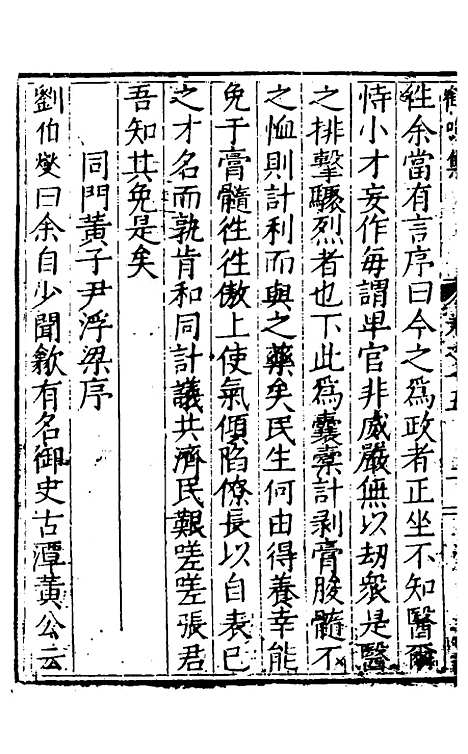 徃余當有言序曰今之爲政者正坐不知醫爾
恃小才妄作每謂卑官非威嚴無以刼衆是醫
之排擊驟烈者也下此爲囊橐計剥膏朘髓不
之恤則計利而與之藥矣民生何由得養幸能
免于膏髓徃徃傲上使氣傾陷僚長以自表已
之才名而孰肯和同計議共濟民艱嗟嗟張君
吾知其免是矣
同門黃子尹浮梁序
劉伯燮曰余自少聞歙有名御史古潭黃公云